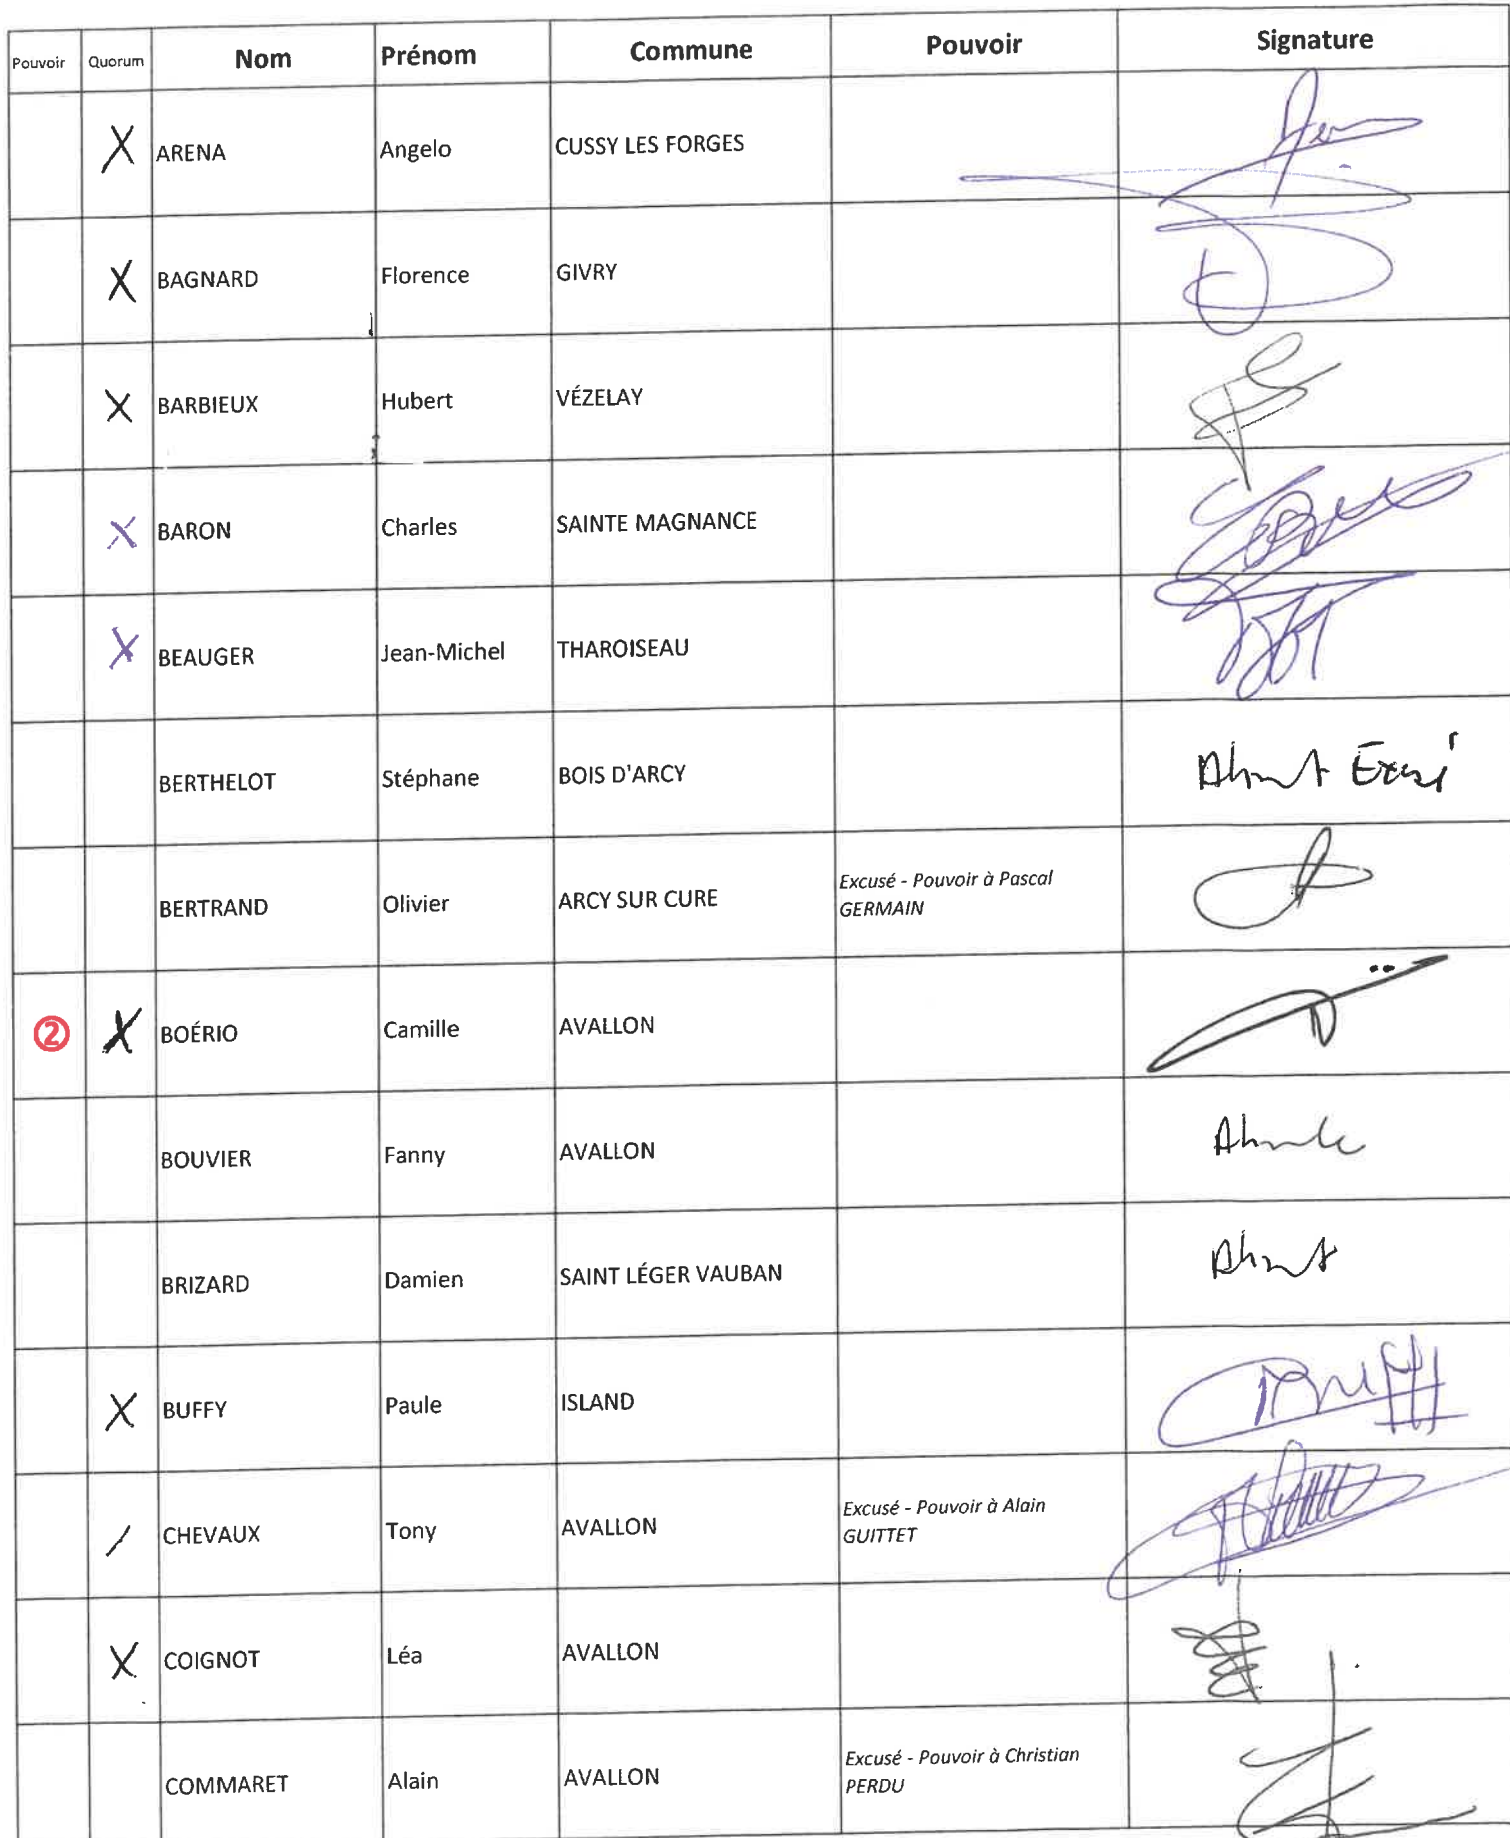 Pouvoir Quorum Nom Prénom Commune Pouvoir Signature
X ARENA Angelo CUSSY LES FORGES
X BAGNARD Florence GIVRY
X BARBIEUX Hubert VÉZELAY
X BARON Charles SAINTE MAGNANCE
X BEAUGER Jean-Michel THAROISEAU
BERTHELOT Stéphane BOIS D'ARCY Absent Excusé
BERTRAND Olivier ARCY SUR CURE Excusé - Pouvoir à Pascal
GERMAIN
② X BOÉRIO Camille AVALLON
BOUVIER Fanny AVALLON Absente
BRIZARD Damien SAINT LÉGER VAUBAN Absent
X BUFFY Paule ISLAND
/ CHEVAUX Tony AVALLON Excusé - Pouvoir à Alain
GUITTET
X COIGNOT Léa AVALLON
COMMARET Alain AVALLON Excusé - Pouvoir à Christian
PERDU